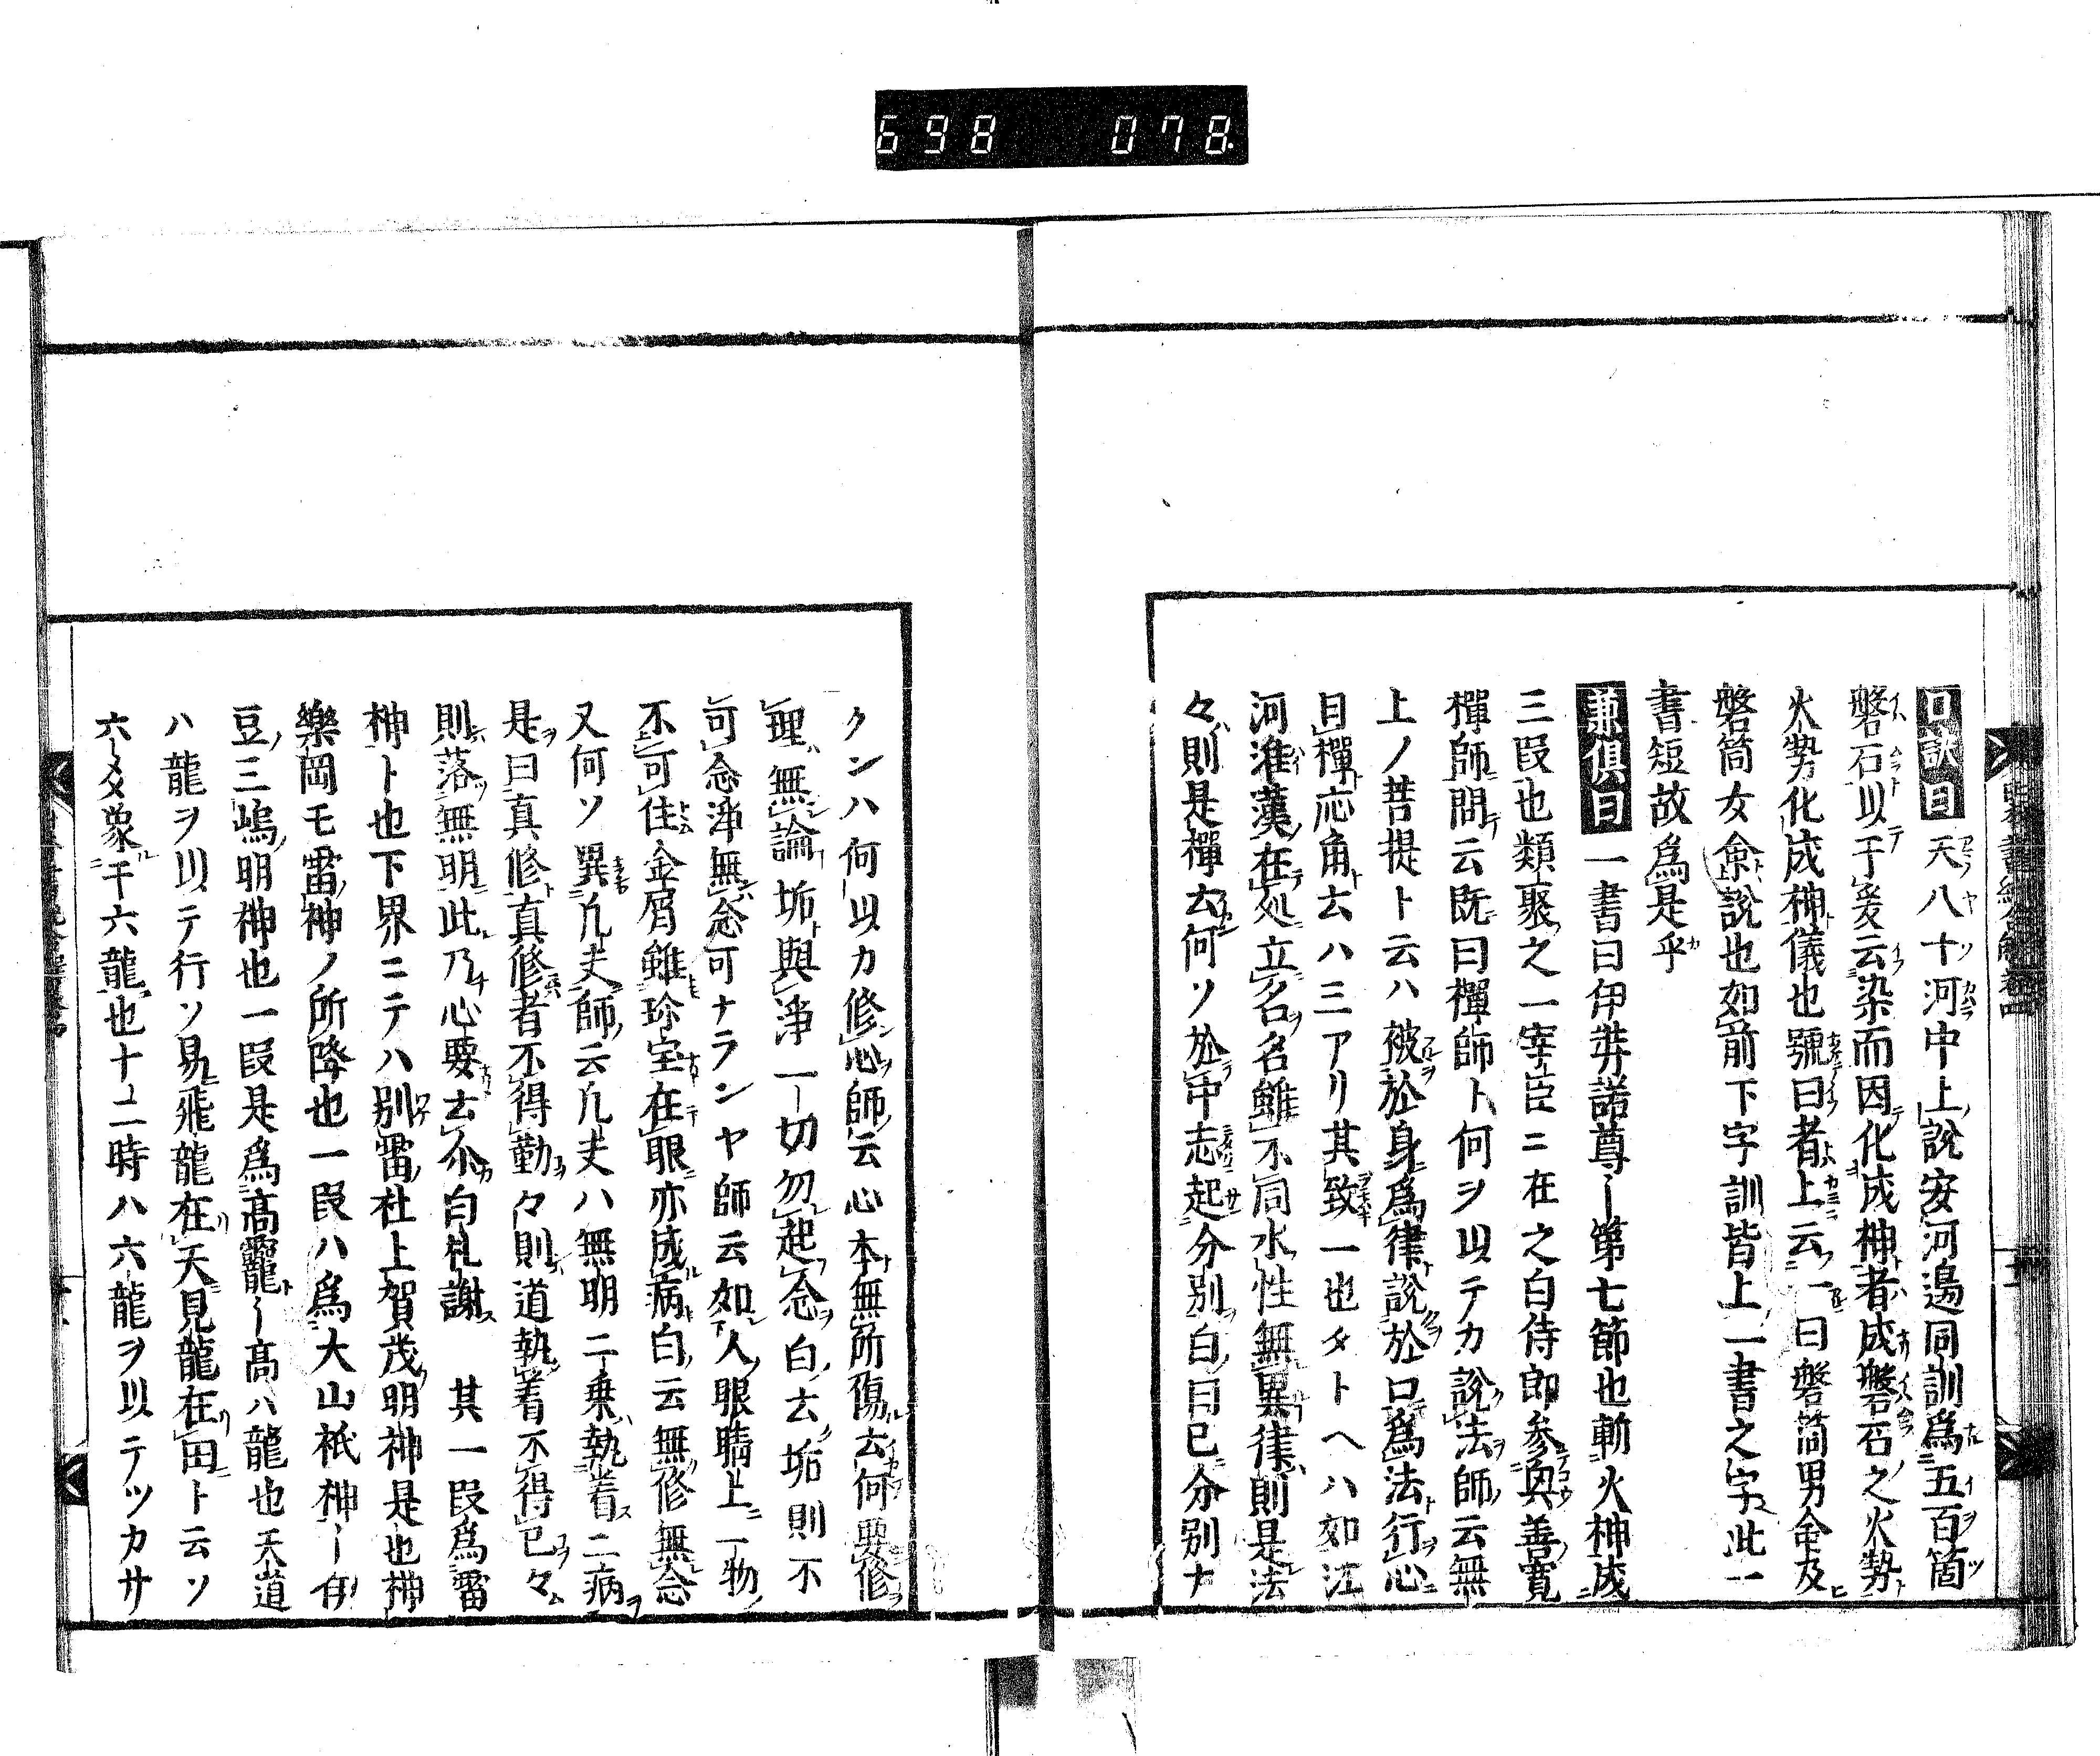 698 078
口訣曰天八十河中上說安河邊同訓爲五百箇
磐石以于爰云染而因化成神者成磐石之火勢
火勢化成神儀也號曰者上云一曰磐筒男命及
磐筒女命說也如前下字訓皆上一書之字此一
書短故爲是乎
兼俱曰一書曰伊弉諾尊ー第七節也斬火神成
三段也類聚之一宰臣ニ在之白侍郎参與善寛
禪師問云既曰禪師ト何ヲ以テカ說法師云無
上ノ菩提ト云ハ被於身爲律說於口爲法行心
曰禪応角去ハ三アリ其致一也タトヘハ如江
河淮漢在処立名名雖不同水性無異律則是法
々則是禪去何ソ於中志起分別白曰已分別ナ
クンハ何以カ修心師云心本無所傷去何要修
理無論垢與淨一切勿起念白去垢則不
可念淨無念可ナランヤ師云如人眼睛上一物
不可住金屑雖珍宝在眼亦成病白云無修無念
又何ソ異凡夫師云凡夫ハ無明二乗執着二病
是曰真修真修者不得勤々則道執着不得已々
則落無明此乃心要去尒白礼謝　其一段爲雷
神ト也下界ニテハ別雷社上賀茂明神是也神
樂岡モ雷神ノ所降也一段ハ爲大山祇神ー伊
豆三嶋明神也一段是爲高龗ー高ハ龍也天道
ハ龍ヲ以テ行ソ易飛龍在天見龍在田ト云ソ
六爻象于六龍也十二時ハ六龍ヲ以テツカサ